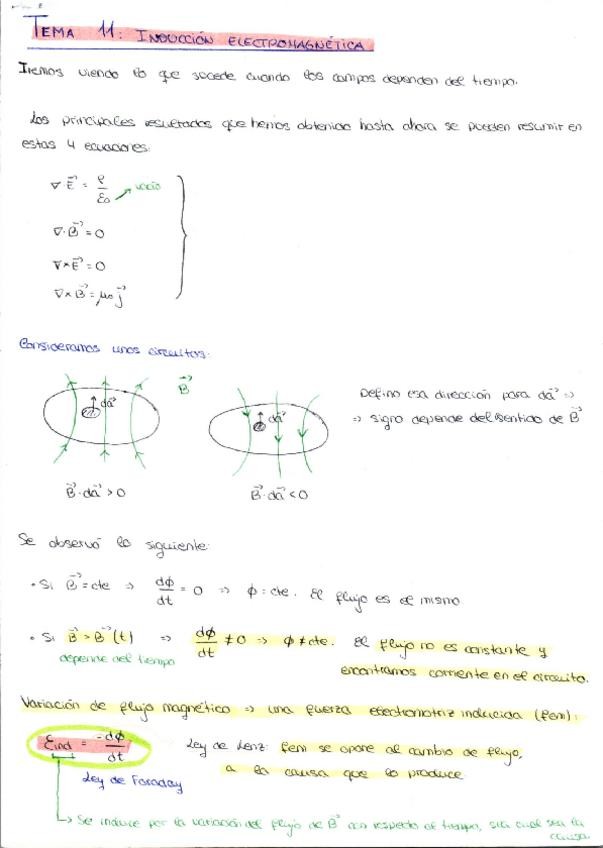 TEMA 11: INDUCCIÓN ELECTROMAGNÉTICA
Iremos viendo lo que sucede cuando los campos dependen del tiempo.
Los principales resultados que hemos obtenido hasta ahora se pueden resumir en
estas 4 ecuaciones:
∇·E⃗ = ρ/ε₀ → vacío
∇·B⃗ = 0
∇×E⃗ = 0
∇×B⃗ = μ₀ j⃗
Consideramos unos circuitos:
B⃗
da⃗
da⃗
Defino esa dirección para da⃗ ⇒
⇒ signo depende del sentido de B⃗
B⃗·da⃗ > 0
B⃗·da⃗ < 0
Se observó lo siguiente:
• Si B⃗ = cte ⇒ dϕ/dt = 0 ⇒ ϕ = cte. El flujo es el mismo
• Si B⃗ = B⃗(t) ⇒ dϕ/dt ≠ 0 ⇒ ϕ ≠ cte. El flujo no es constante y
depende del tiempo
encontramos corriente en el circuito.
Variación de flujo magnético ⇒ una fuerza electromotriz inducida (fem):
Ɛind = -dϕ/dt
Ley de Lenz: fem se opone al cambio de flujo,
a la causa que lo produce
Ley de Faraday
→ Se induce por la variación del flujo de B⃗ con respecto al tiempo, sea cual sea la
causa.